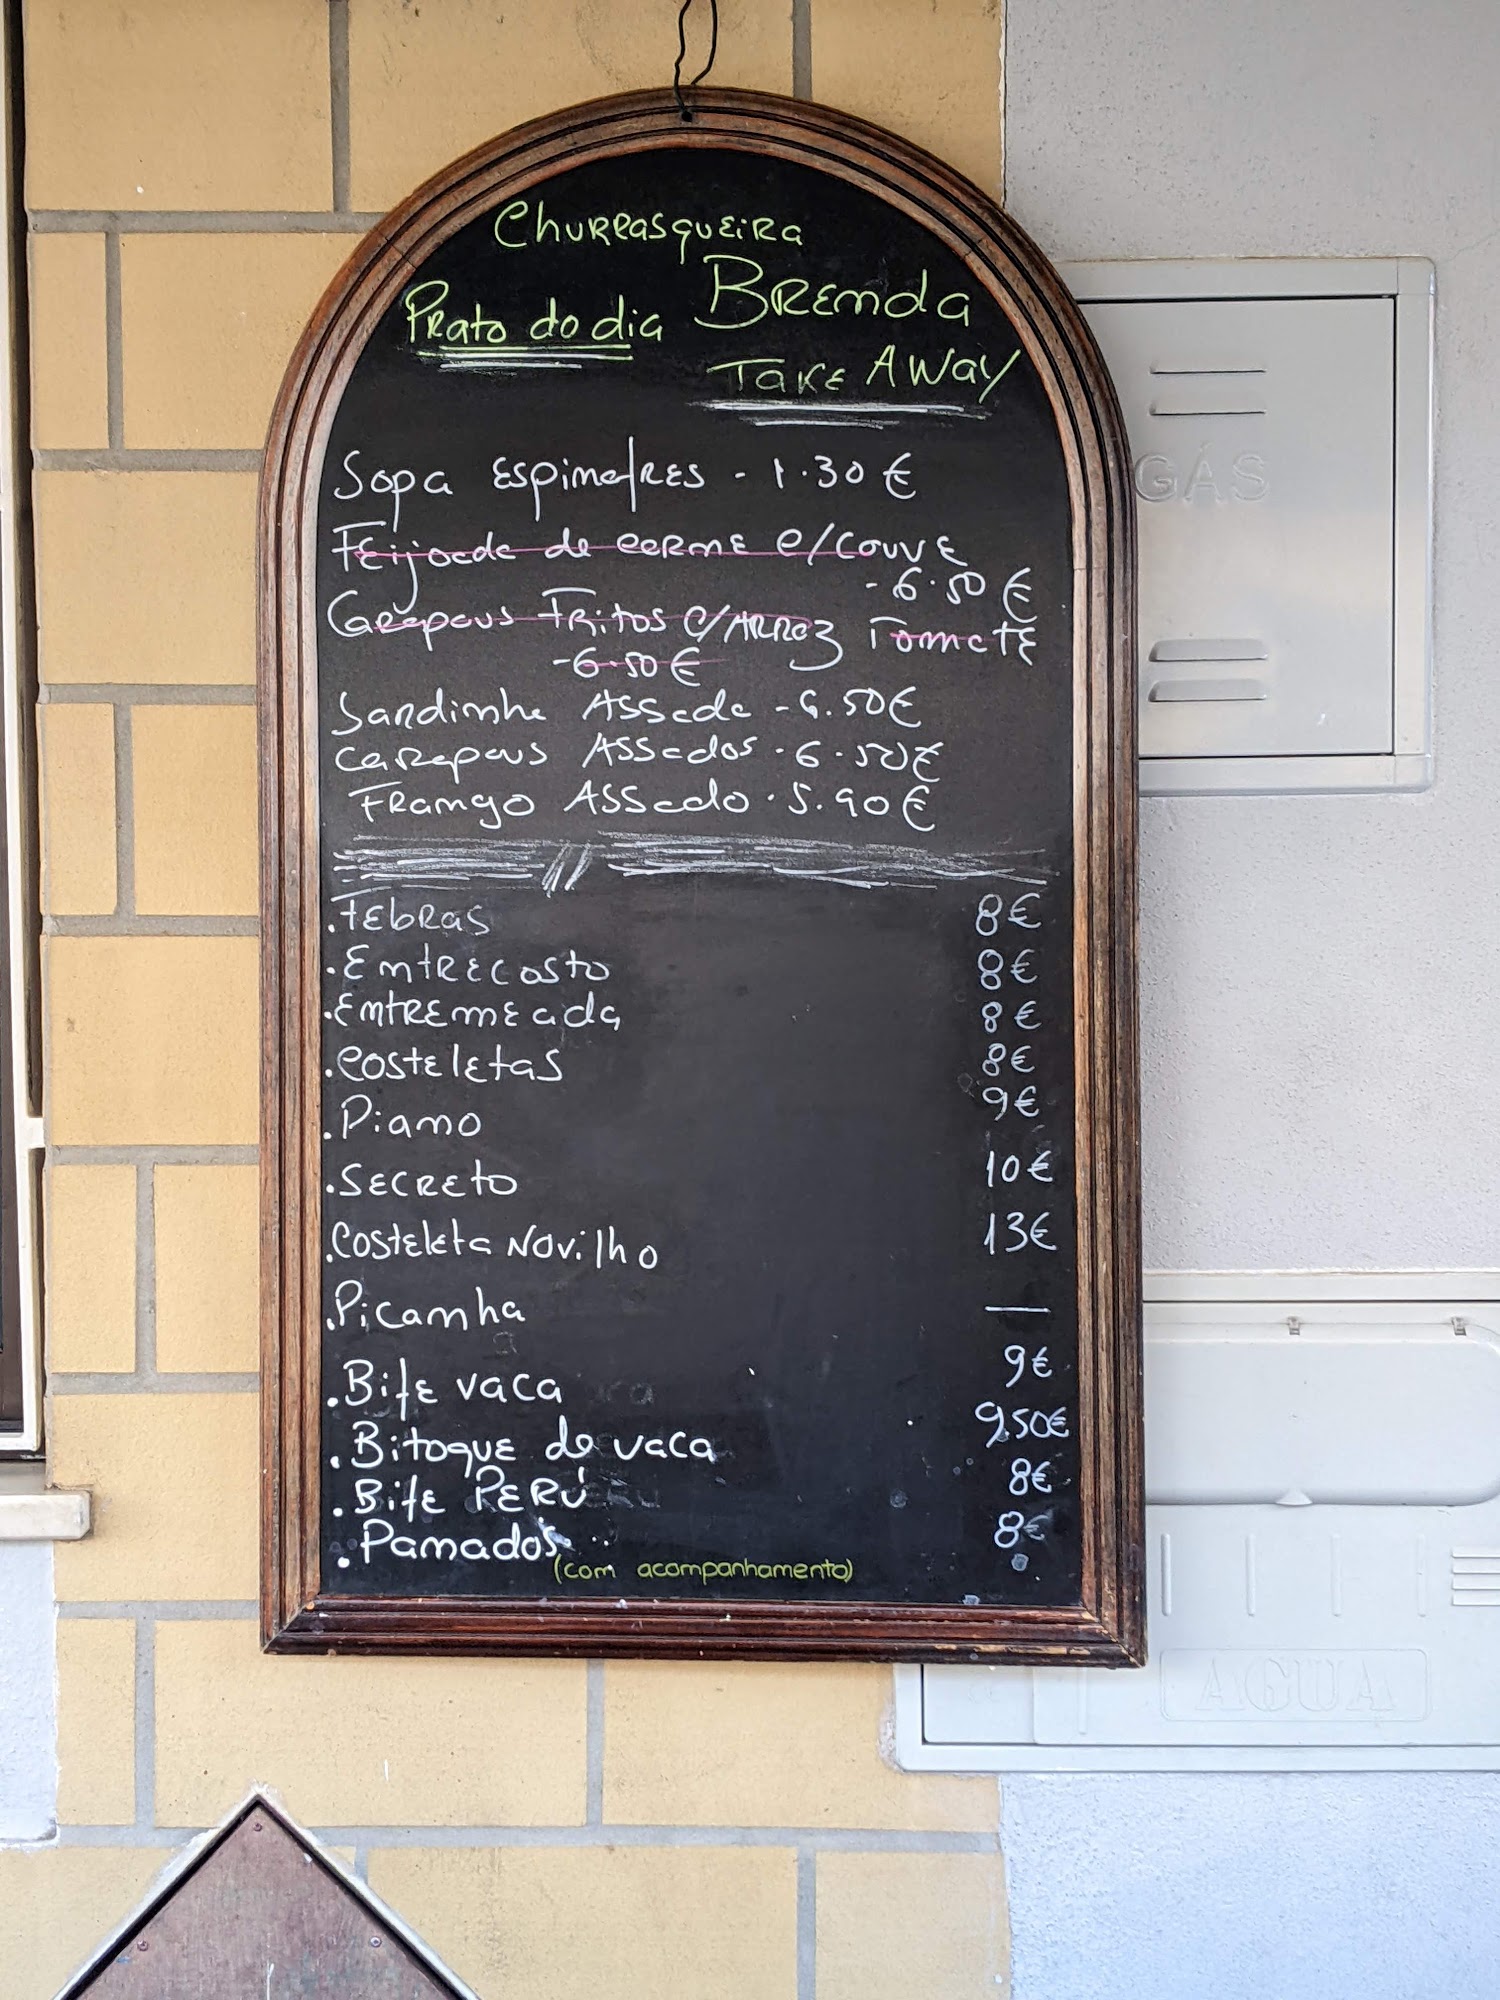 Churrasqueira
Brenda
Prato do dia
Take Away
Sopa espinafres - 1.30 €
Feijoada de carne c/couve
- 6.50 €
Carapaus Fritos c/Arroz Tomate
- 6.50 €
Sardinha Assada - 6.50€
Carapaus Assados - 6.50€
Frango Assado - 5.90€
.Febras 8€
.Entrecosto 8€
.Entremeada 8€
.Costeletas 8€
.Piano 9€
.Secreto 10€
.Costeleta Novilho 13€
.Picanha —
.Bife vaca 9€
.Bitoque de vaca 9.50€
.Bife Perú 8€
.Panados 8€
(com acompanhamento)
GÁS
AGUA